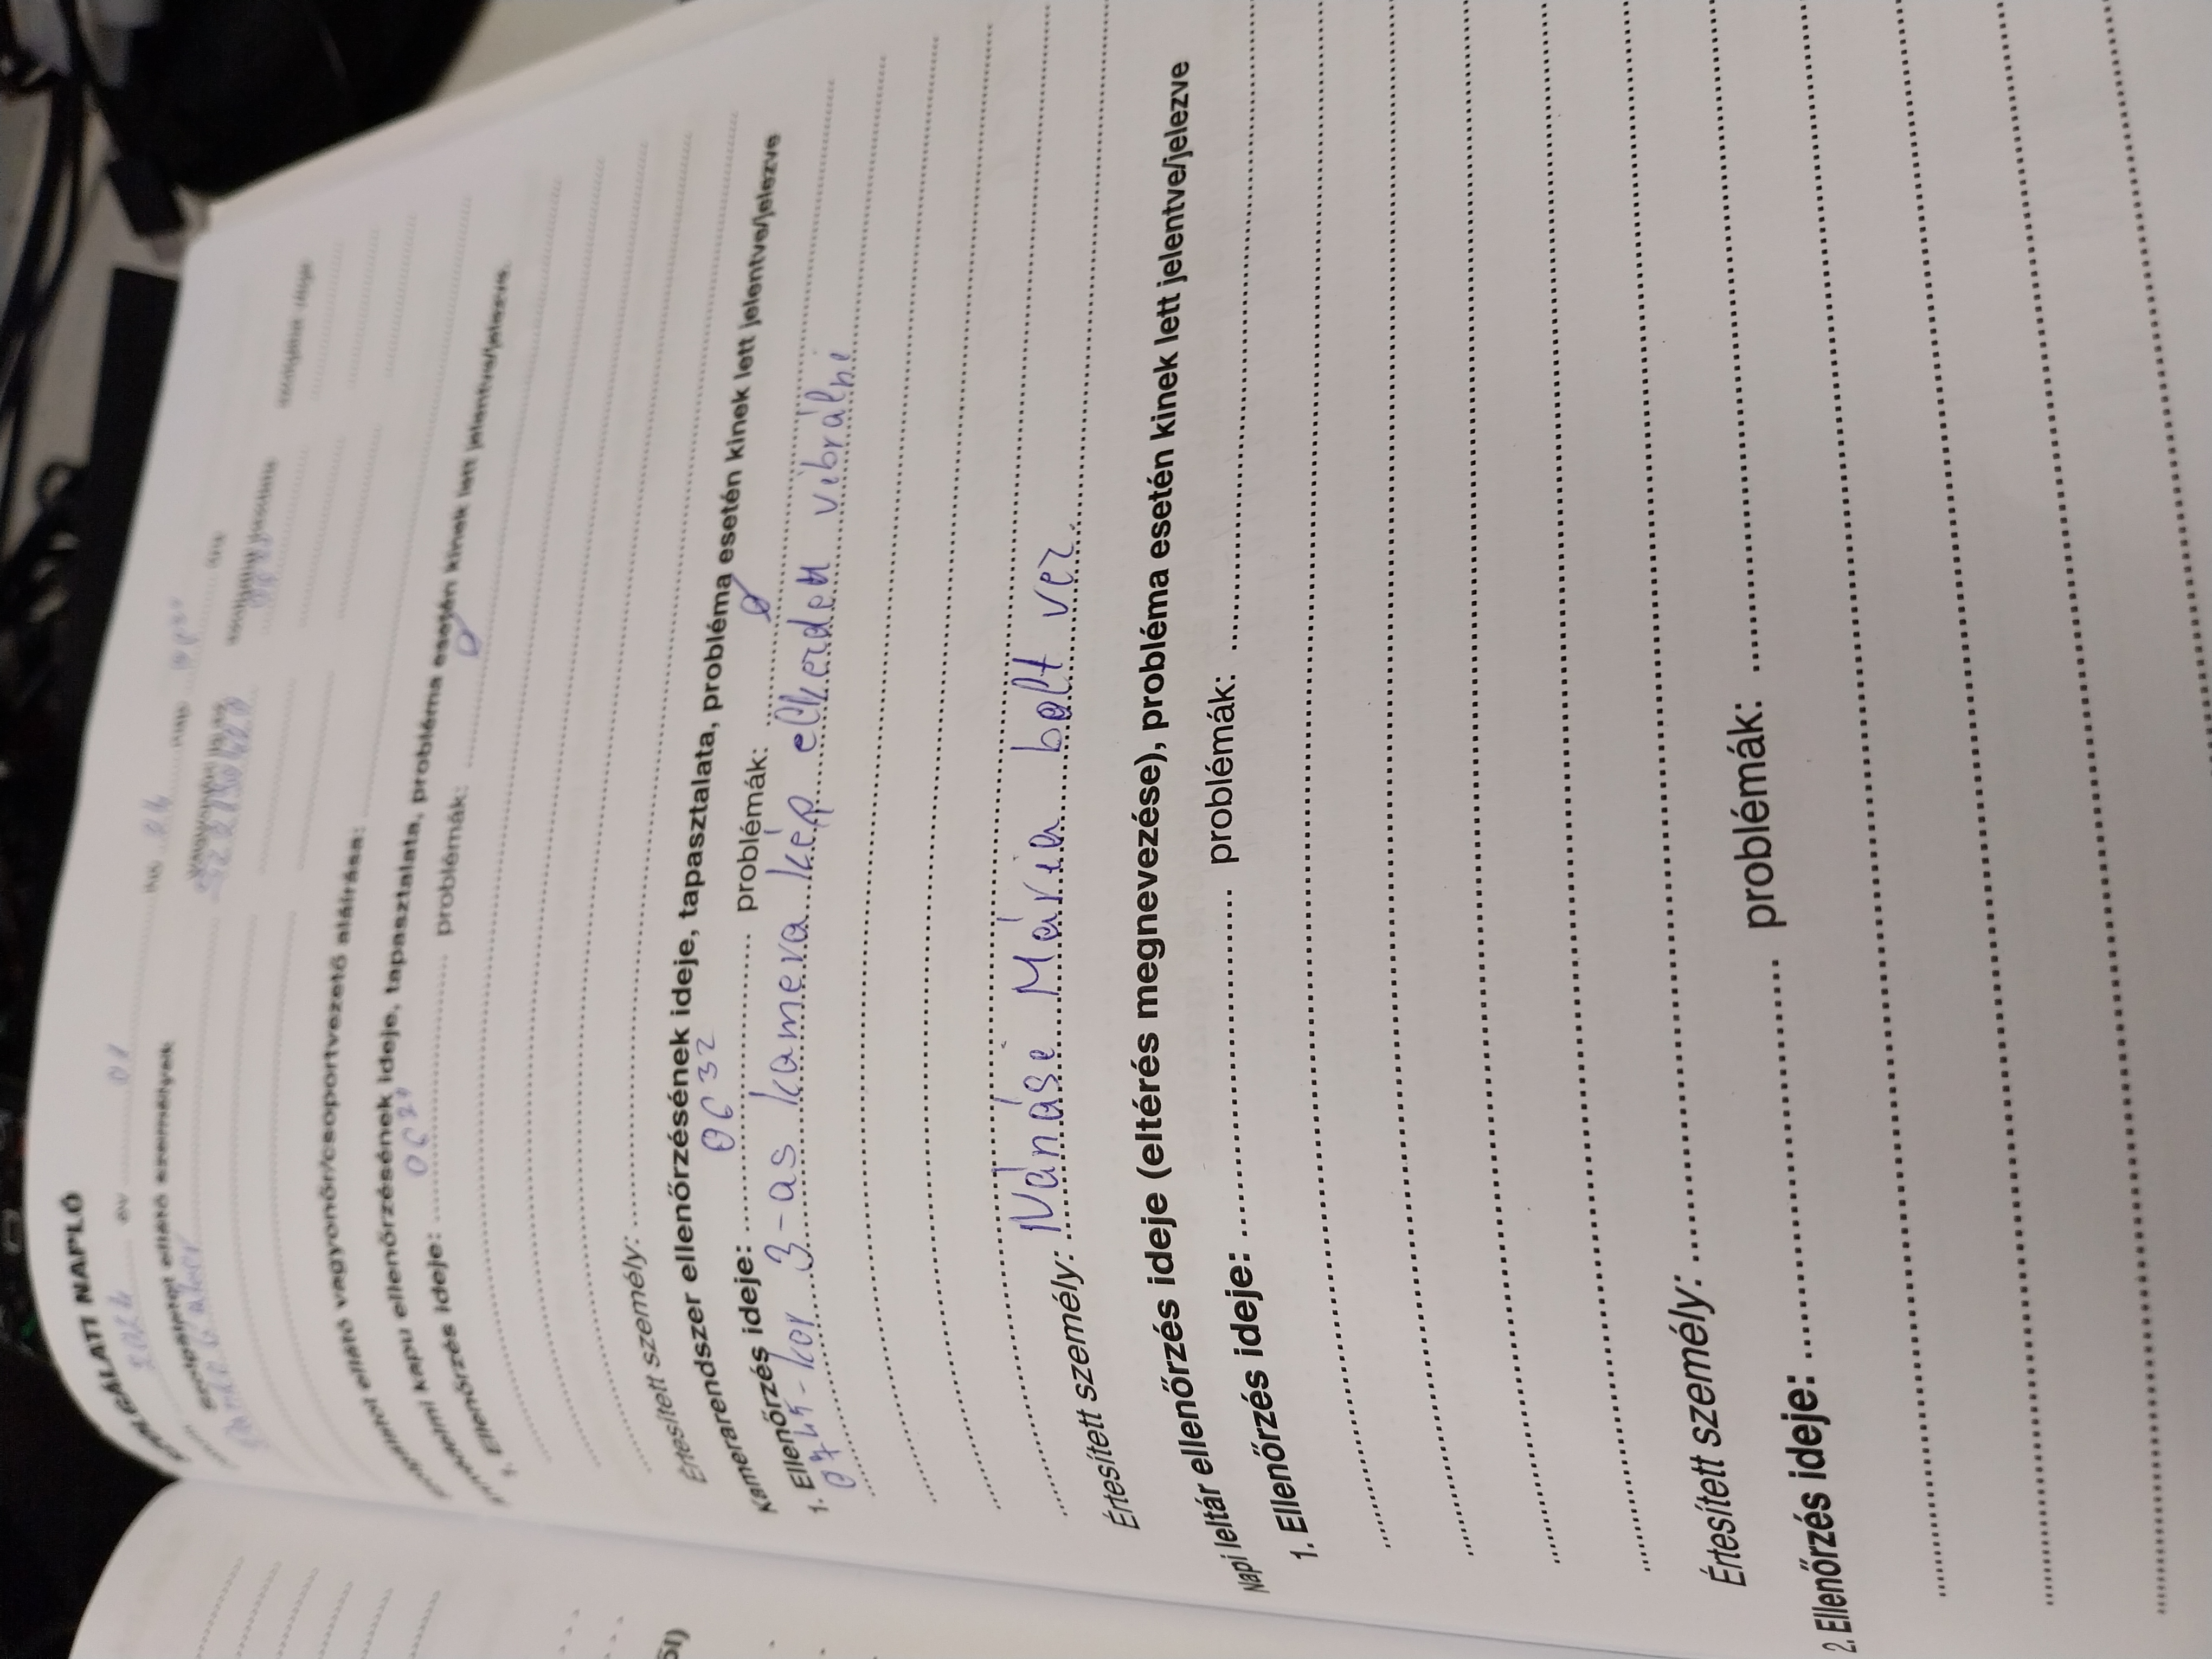 SZOLGÁLATI NAPLÓ
év 01 hó 26 nap
Szolgálatot ellátó személyek
Szolgálatot ellátó vagyonőr/csoportvezető aláírása:
kapu ellenőrzésének ideje, tapasztalata, probléma esetén kinek lett jelentve/jelezve.
1. Ellenőrzés ideje: problémák: Ø
Értesített személy:
Kamerarendszer ellenőrzésének ideje, tapasztalata, probléma esetén kinek lett jelentve/jelezve
1. Ellenőrzés ideje: 06 32 problémák: Ø
0745-kor 3-as kamera kép elkezdett vibrálni
Értesített személy: Nánási Mária bolt vez.
Napi leltár ellenőrzés ideje (eltérés megnevezése), probléma esetén kinek lett jelentve/jelezve
1. Ellenőrzés ideje: problémák:
Értesített személy:
2. Ellenőrzés ideje: problémák: